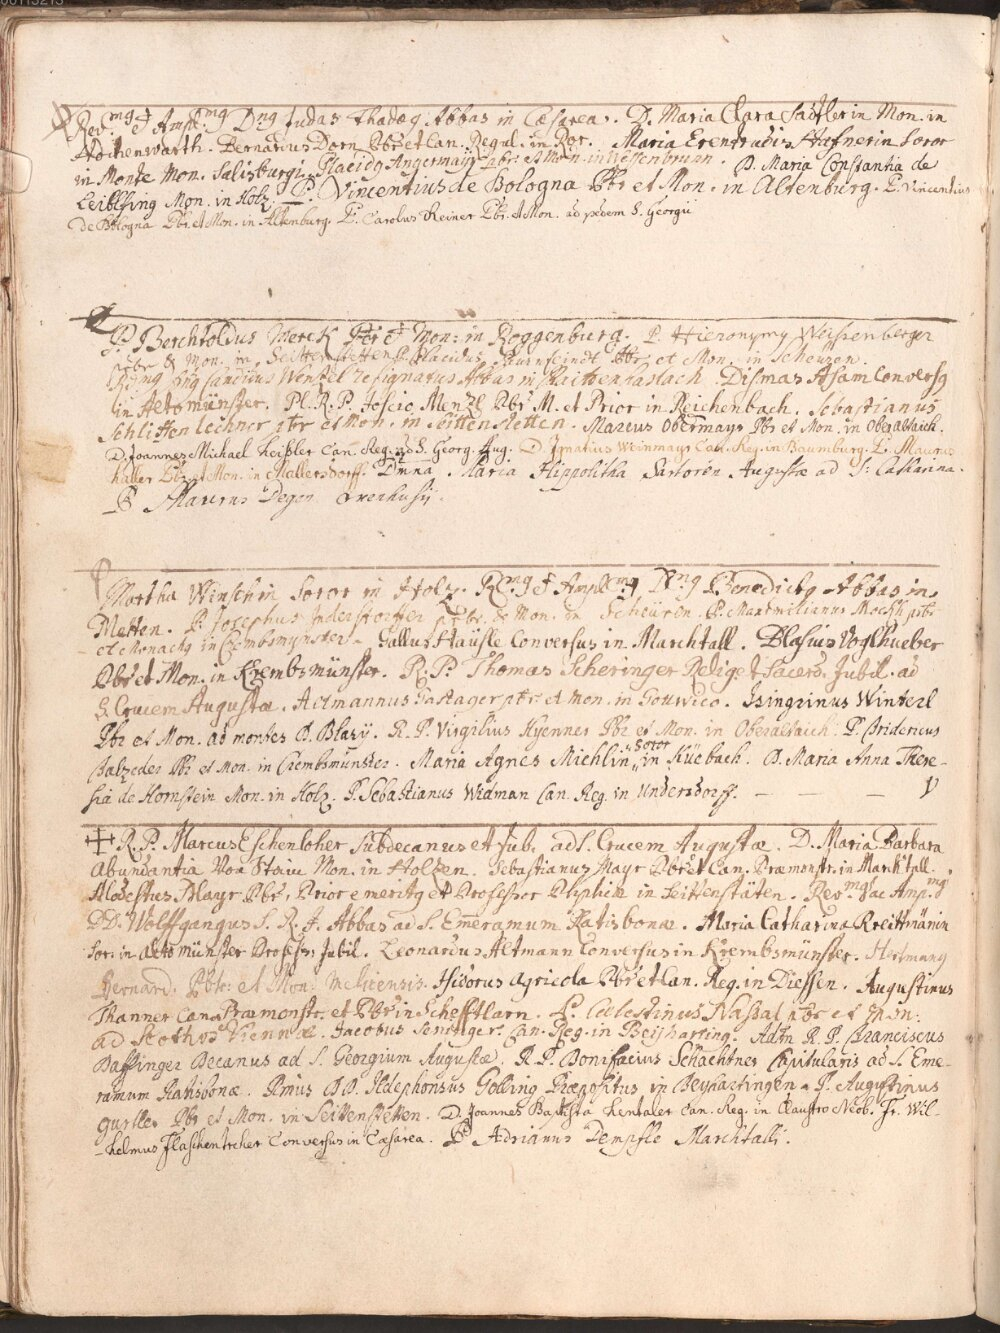 00113213
Rev.mg et Ampl.mg Dng Judas Thadæg Abbas in Cæsarea. D. Maria Clara Sadlerin Mon. in
Aichenwarth. Bernardus Dorn Pbr et Can. Regul. in Ror. Maria Erentrudis Hafnerin Soror
in Monte Mon. Salisburgi. Placidg Angermayr pbr. et Mon. in Wessenbrunn. D. Maria Constantia de
Leiblfing Mon. in Holz. P. Vincentius de Bologna Pbr et Mon. in Altenburg. P. Vincentius
de Bologna Pbr. et Mon. in Altenburg. P. Carolus Reiner Pbr. et Mon. ad pedem S. Georgii
P. Berchtoldus Merck Pbr et Mon: in Roggenburg. P. Hieronymg Weissenberger
pbr & Mon. in Seittenstetten. P. Placidus Pbr et Mon. in Scheuren.
Rdmg Dng Candidus Wenzel resignatus Abbas in Raittenhaslach. Dismas Asam Conversg
in Altomünster. Pl. R. P. Joscio Menzl Pbr M. et Prior in Reichenbach. Sebastianus
Schlittenlechner pbr et Mon. in Seittenstetten. Marius Obermayr Pbr et Mon. in Oberaltaich.
D. Joannes Michael Can. Reg. ad S. Georg. Aug. D. Ignatius Weinmayr Can. Reg. in Baumburg. P. Maurus
Haller Pbr et Mon. in Mallersdorff. Maria Hippolitha Sartorin Augustæ ad S: Catharina.
P. Maurus Degen
Martha Winschin Soror in Holz. Rmg et Amplmg Dng Benedictg Abbas in
Metten. P. Josephus Inderstorffer pbr. et Mon. in Scheuren. P. Maximilianus pbr
et Monachg in Crembsmünster. Gallus Häusle Conversus in Marchtall. Blasius Voglhueber
Pbr et Mon. in Krembsmünster. R. P. Thomas Scheringer Relig. et Sacerd. Jubil. ad
S. Crucem Augustæ. Altmannus Gastager pbr et Mon. in Gottwico. Isingrinus Winterl
Pbr et Mon. ad montes S. Blasij. R. P. Virgilius Hyenner Pbr et Mon. in Oberaltaich. P. Fridericus
Pbr et Mon. in Crembsmünster. Maria Agnes Miehlin Soror in Küebach. D. Maria Anna There-
sia de Hornstein Mon. in Holz. P. Sebastianus Widman Can. Reg. in Undersdorff.
R. P. Marcus Eschenloher Subdecanus et Jub. ad S. Crucem Augustæ. D. Maria Barbara
Abundantia Von Stain Mon. in Holzen. Sebastianus Mayr Pbr et Can. Præmonstr. in Marchtall.
Modestus Mayr Pbr, Prior emeritg et Professor in Seittenstäten. Rev.mg ac Amp.mg
DD. Wolffgangus S. R. I. Abbas ad S. Emeramum Ratisbonæ. Maria Catharina Kreittmänin
Sor. in Altomünster Profess. Jubil. Leonardus Altmann Conversus in Krembsmünster. Hartmang
Bernard. Pbr: et Mon: Melicensis. Isidorus Agricola Pbr et Can. Reg. in Diessen. Augustinus
Thanner Can. Præmonstr. et Pbr in Schefftlarn. P. Cælestinus Nassal pbr et Mon:
ad Scothos Viennæ. Jacobus Can. Reg. in Beyharting. Adm. R. P. Franciscus
Bassinger Decanus ad S. Georgium Augustæ. R. P. Bonifacius Schachtner Capitularis ad S. Eme-
ramum Ratisbonæ. Rmus D.D. Ildephonsus Golling Præpositus in Beyhartingen. P. Augustinus
Pbr et Mon. in Seittenstetten. D. Joannes Baptista Can. Reg. in Claustro Neob. Fr. Wil-
helmus Conversus in Cæsarea. P. Adrianus Dempfle Marchtalli.